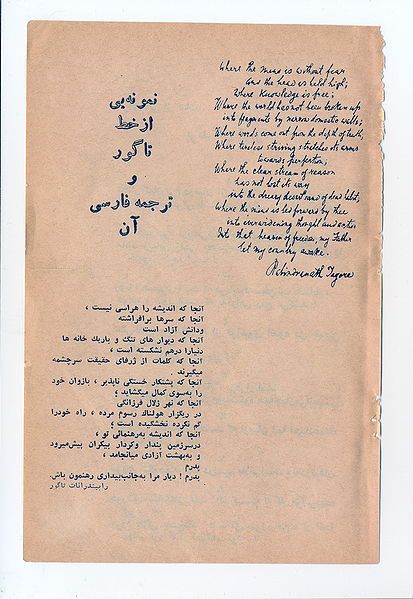 نمونه‌یی
از خط
تاگور
و
ترجمه فارسی
آن
Where the mind is without fear
and the head is held high;
Where knowledge is free;
Where the world has not been broken up
into fragments by narrow domestic walls;
Where words come out from the depth of truth;
Where tireless striving stretches its arms
towards perfection;
Where the clear stream of reason
has not lost its way
into the dreary desert sand of dead habit;
Where the mind is led forward by thee
into ever-widening thought and action
Into that heaven of freedom, my Father
let my country awake.
Rabindranath Tagore
آنجا که اندیشه را هراسی نیست ،
آنجا که سرها برافراشته
ودانش آزاد است
آنجا که دیوار های تنگ و باریك خانه ها
دنیارا درهم نشکسته است ،
آنجا که کلمات از ژرفای حقیقت سرچشمه
میگیرند .
آنجا که پشتکار خستگی ناپذیر ، بازوان خود
را به‌سوی کمال میگشاید ؛
آنجا که نهر زلال فرزانگی
در ریگزار هولناك رسوم مرده ، راه خودرا
گم نکرده نخشگیده است ؛
آنجا که اندیشه به‌رهنمائی تو ،
درسرزمین پندار وکردار بیکران پیش‌میرود
و به‌بهشت آزادی میانجامد ،
پدرم
پدرم ! دیار مرا به‌جانب‌بیداری رهنمون باش.
رابیندرانات تاگور